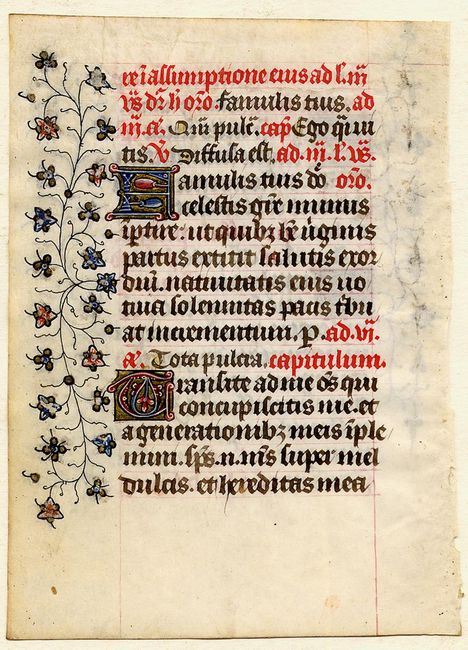 assumptione eius ad
oro. Famulis tuis. ad
pulc. cap Ego q̄ ui
tis. V Diffusa est. ad. iii. l. vs.
Famulis tuis dō oro.
celestis gr̄e munus
īptire: ut quibz bē ūginis
partus extitit salutis exor
diū. natiuitatis eius uo
tiua solennitas pacis t̄bu
at incrementum. P. ad. vi.
a. Tota pulcra. capitulum.
Transite ad me ōs qui
concupiscitis me. et
a generationibz meis īple
mini. sp̄s. n. m̄s super mel
dulcis. et hereditas mea